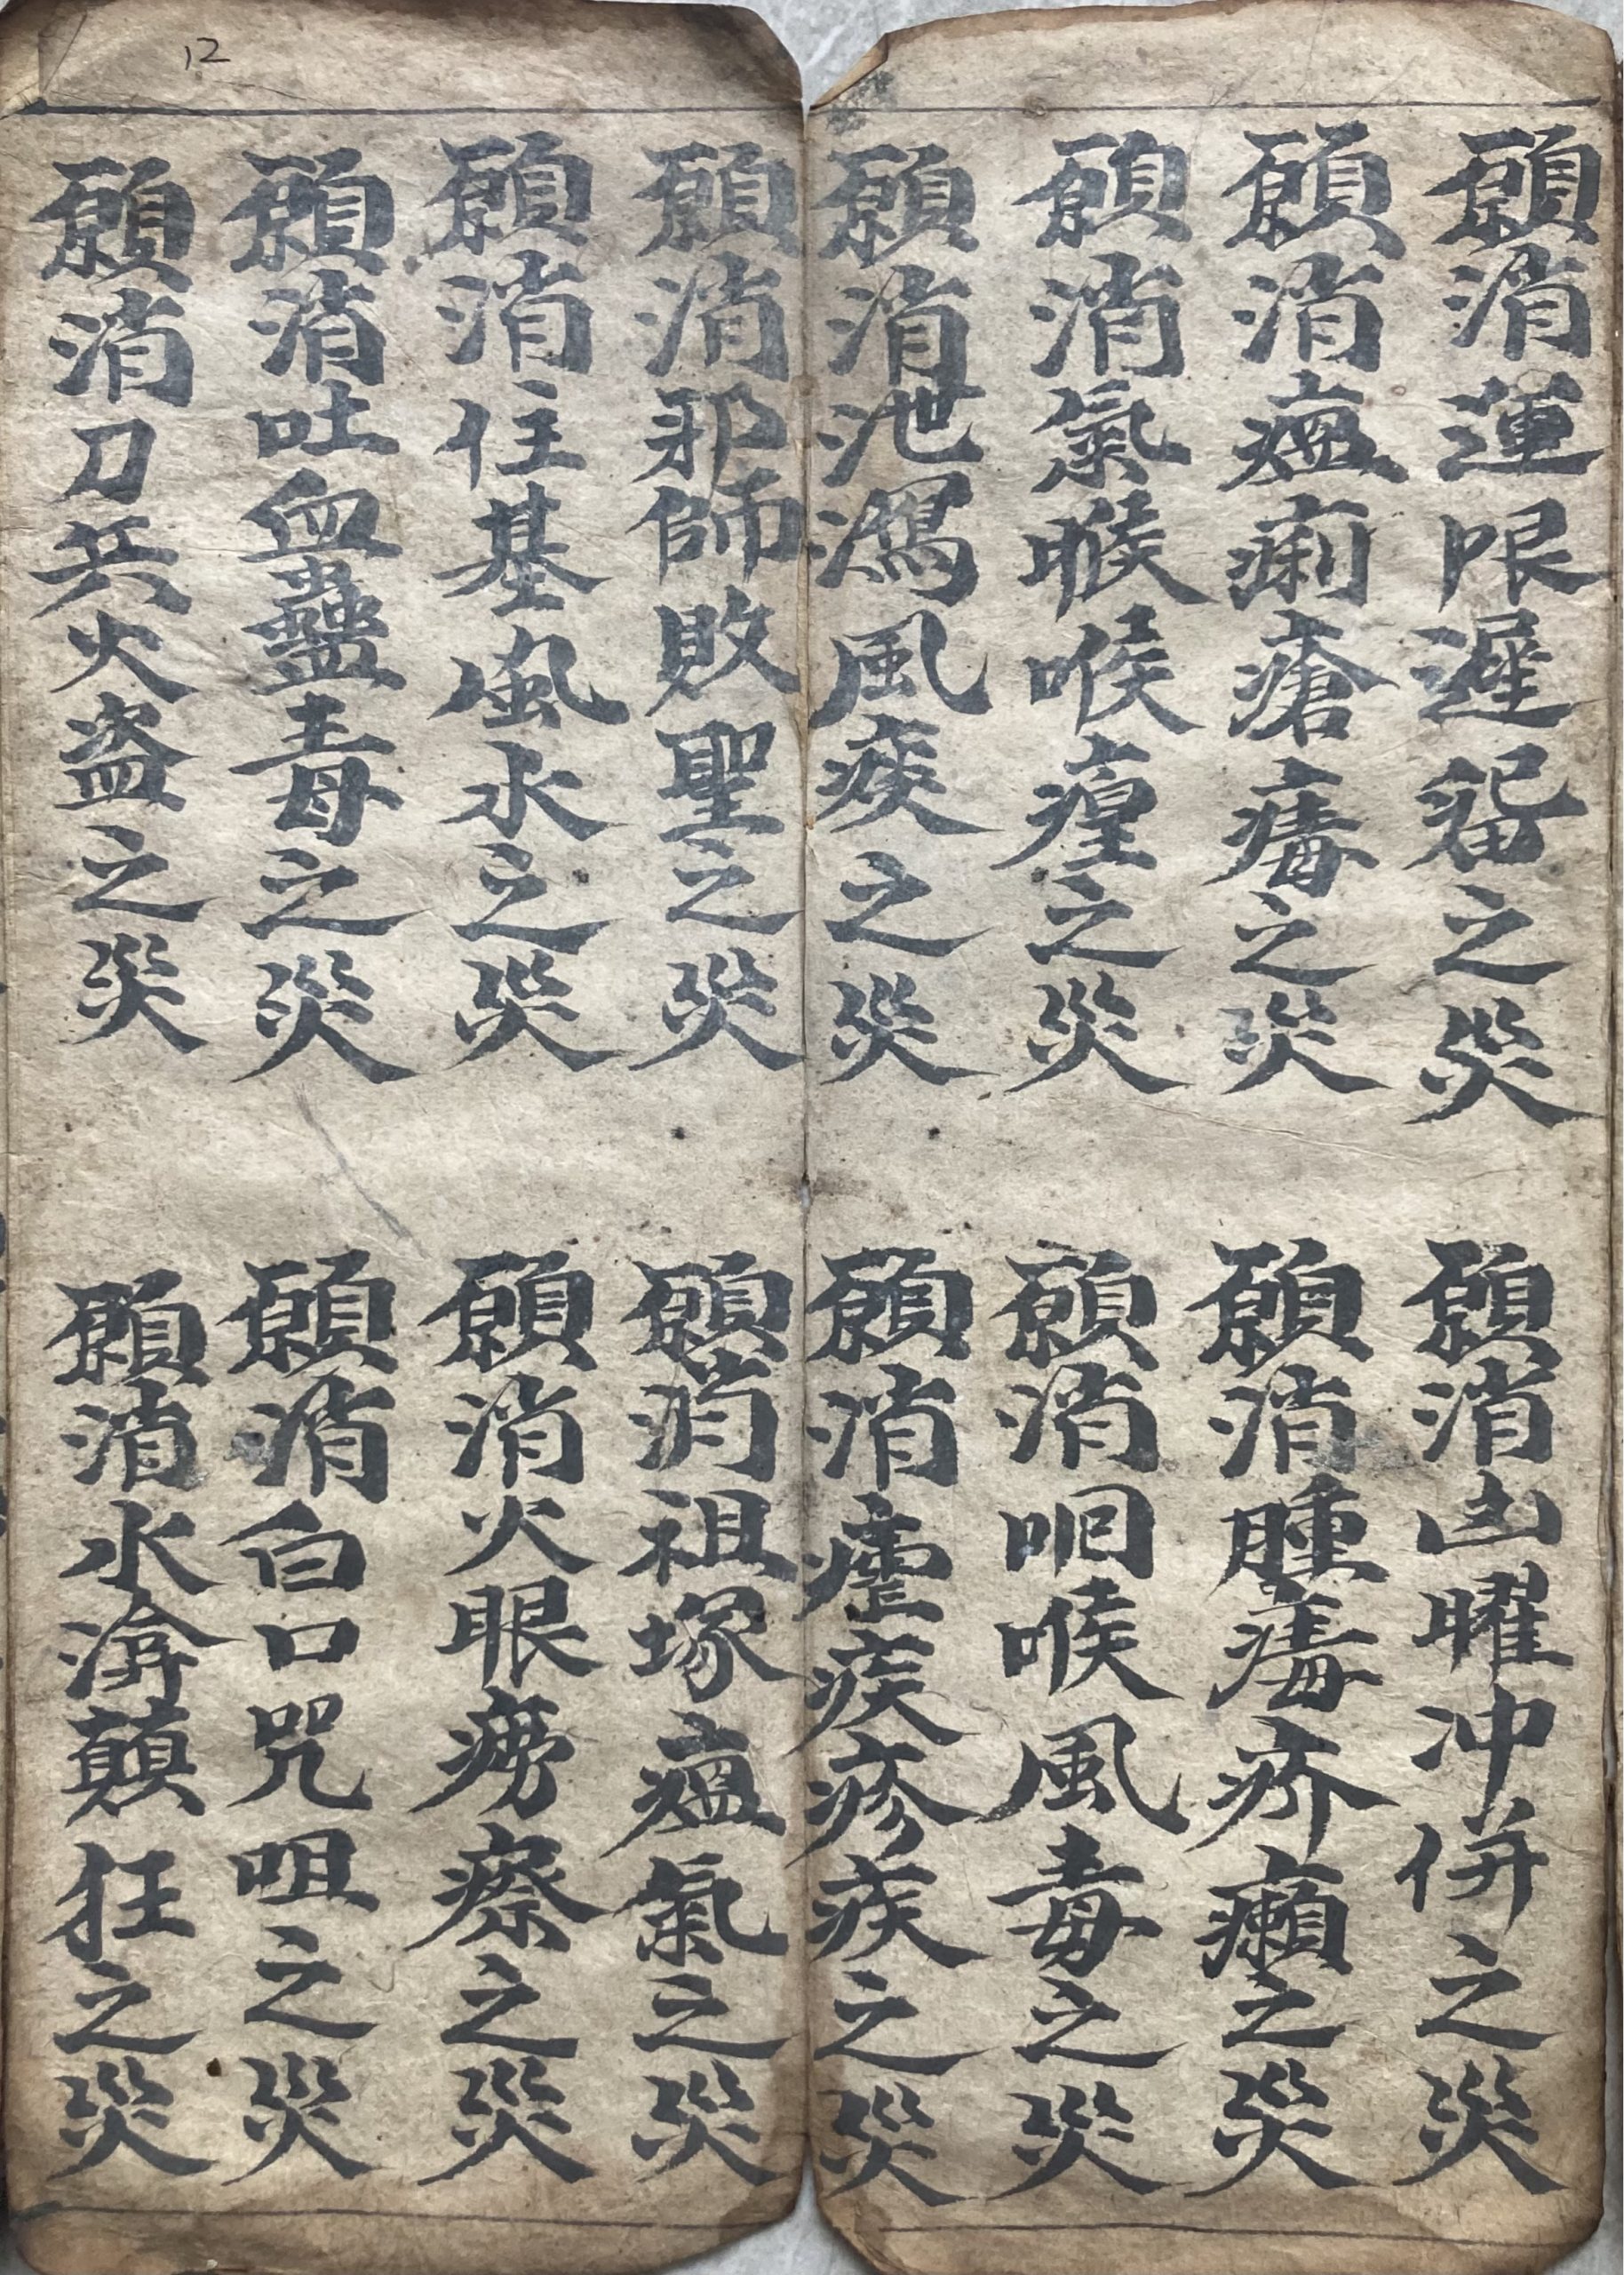 願消運限遲留之災
願消凶曜冲併之災
願消瘟痢瘡痗之災
願消腫毒疥癩之災
願消氣喉喉瘴之災
願消咽喉風毒之災
願消泄瀉風疾之災
願消瘧疾疹疾之災
願消邪師敗聖之災
願消祖塚瘟氣之災
願消住基風水之災
願消火眼癆瘵之災
願消吐血蠱毒之災
願消白口咒咀之災
願消刀兵火盗之災
願消水淪顛狂之災
12